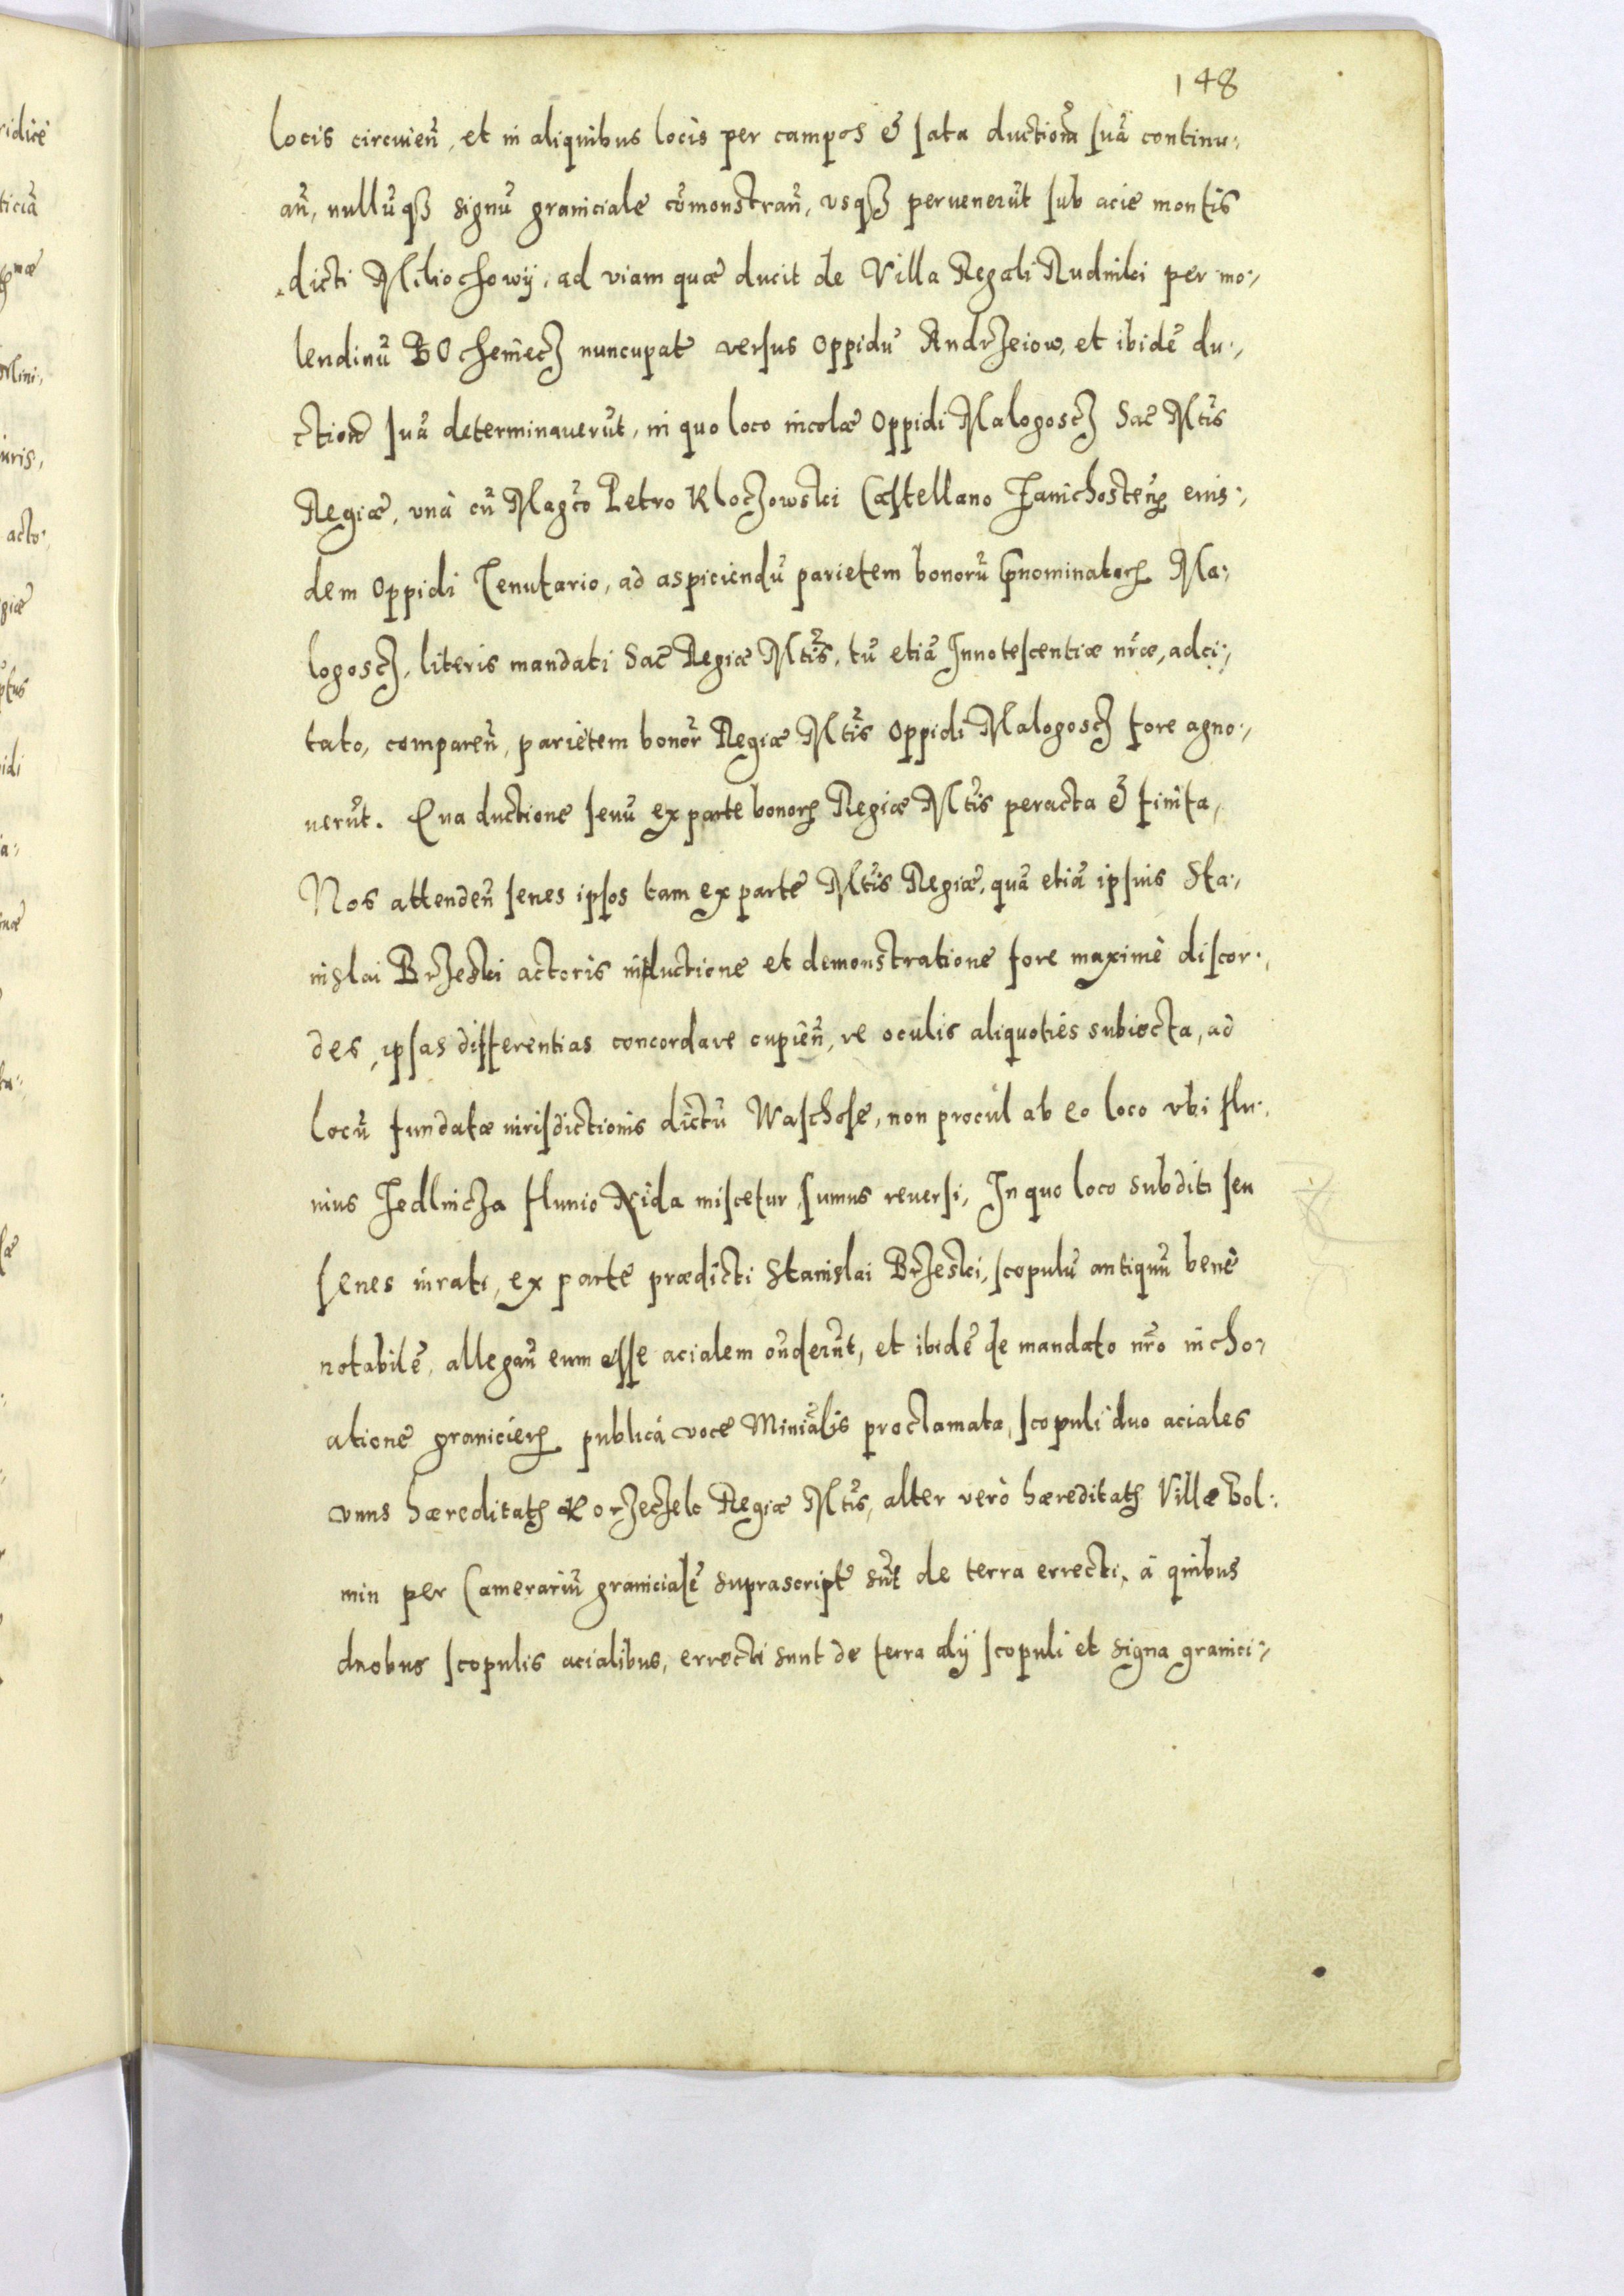 148
locis circuieñ, et in aliquibus locis per campos & sata ductionẽ suã continu:,
añ, nullũqꝫ signũ graniciale cõmonstrañ, vsqꝫ peruenerũt sub acie montis
dicti Miliochowÿ, ad viam quæ ducit de Villa Regali Rudniki per mo:,
lendinũ Bochemecz nuncupat versus Oppidũ Andrzeiow, et ibidẽ du:,
ctionẽ suã determinauerũt, in quo loco incolæ Oppidi Malogoscz Sac̃ Mt̃is
Regiæ, vnà cũ Magc̃o Petro Kloczowski Castellano Zauichosteñ eius:,
dem Oppidi Tenutario, ad aspiciendũ parietem bonorũ p̃nominatoꝝ Ma:,
logoscz, literis mandati Sac̃ Regiæ Mt̃is, tũ etiã Innotescentiæ nr̃æ, adci:,
tato, compareñ, parietem bonor̃ Regiæ Mt̃is Oppidi Malogoscz fore agno:,
uerũt. Qua ductione senũ ex parte bonoꝝ Regiæ Mt̃is peracta & finita,
Nos attendeñ senes ipsos tam ex parte Mt̃is Regiæ, quã etiã ipsius Sta:,
nislai Brzeski actoris in ductione et demonstratione fore maximè discor:,
des, ipsas differentias concordare cupieñ, re oculis aliquoties subiecta, ad
locũ fundatæ iurisdictionis dictũ Waschose, non procul ab eo loco vbi flu:,
uius Jedlnicza fluuio Nida miscetur, sumus reuersi, In quo loco subditi seu
senes iurati, ex parte prædicti Stanislai Brzeski, scopulũ antiquũ benè
notabilẽ, allegañ eum esse acialem oñderũt, et ibidẽ de mandato nr̃o incho:,
atione granicieꝝ publicà voce Miniãlis proclamata, scopuli duo aciales
vnus hæreditatꝭ Korzeczek Regiæ Mt̃is, alter verò hæreditatꝭ Villæ Bol:,
min per Camerariũ granicialẽ suprascript sũt de terra errecti, à quibus
duobus scopulis acialibus, errecti sunt de terra alÿ scopuli et signa granici:,